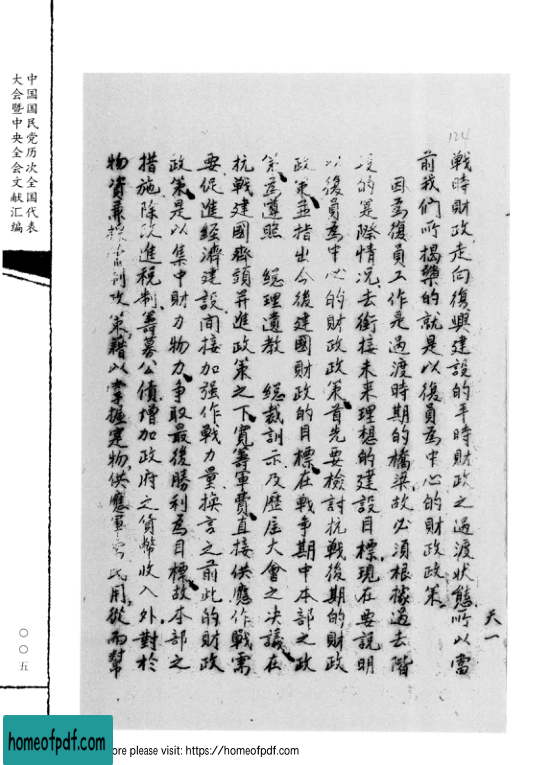 中国国民党历次全国代表
大会暨中央全会文献汇编
〇〇五
124
戰時財政走向復興建設的平時財政之過渡狀態所以當
前我們所揭櫫的就是以復員為中心的財政政策
因為復員工作是過渡時期的橋梁故必須根據過去階
段的實際情况去銜接未来理想的建設目標現在要說明
以復員為中心的財政政策首先要檢討抗戰後期的財政
政策並指出今後建國財政的目標在戰爭期中本部之政
策為遵照 總理遺教 總裁訓示及歷屆大會之决議在
抗戰建國齊頭并進政策之下寬籌軍費直接供應作戰需
要促進經濟建設間接加强作戰力量換言之前此的財政
政策是以集中財力物力爭取最後勝利為目標故本部之
措施除改進税制籌募公債增加政府之貨幣收入外對於
物資兼採 政策藉以掌握實物供應軍 民用從而幫
天一
homeofpdf.com
ore please visit: https://homeofpdf.com